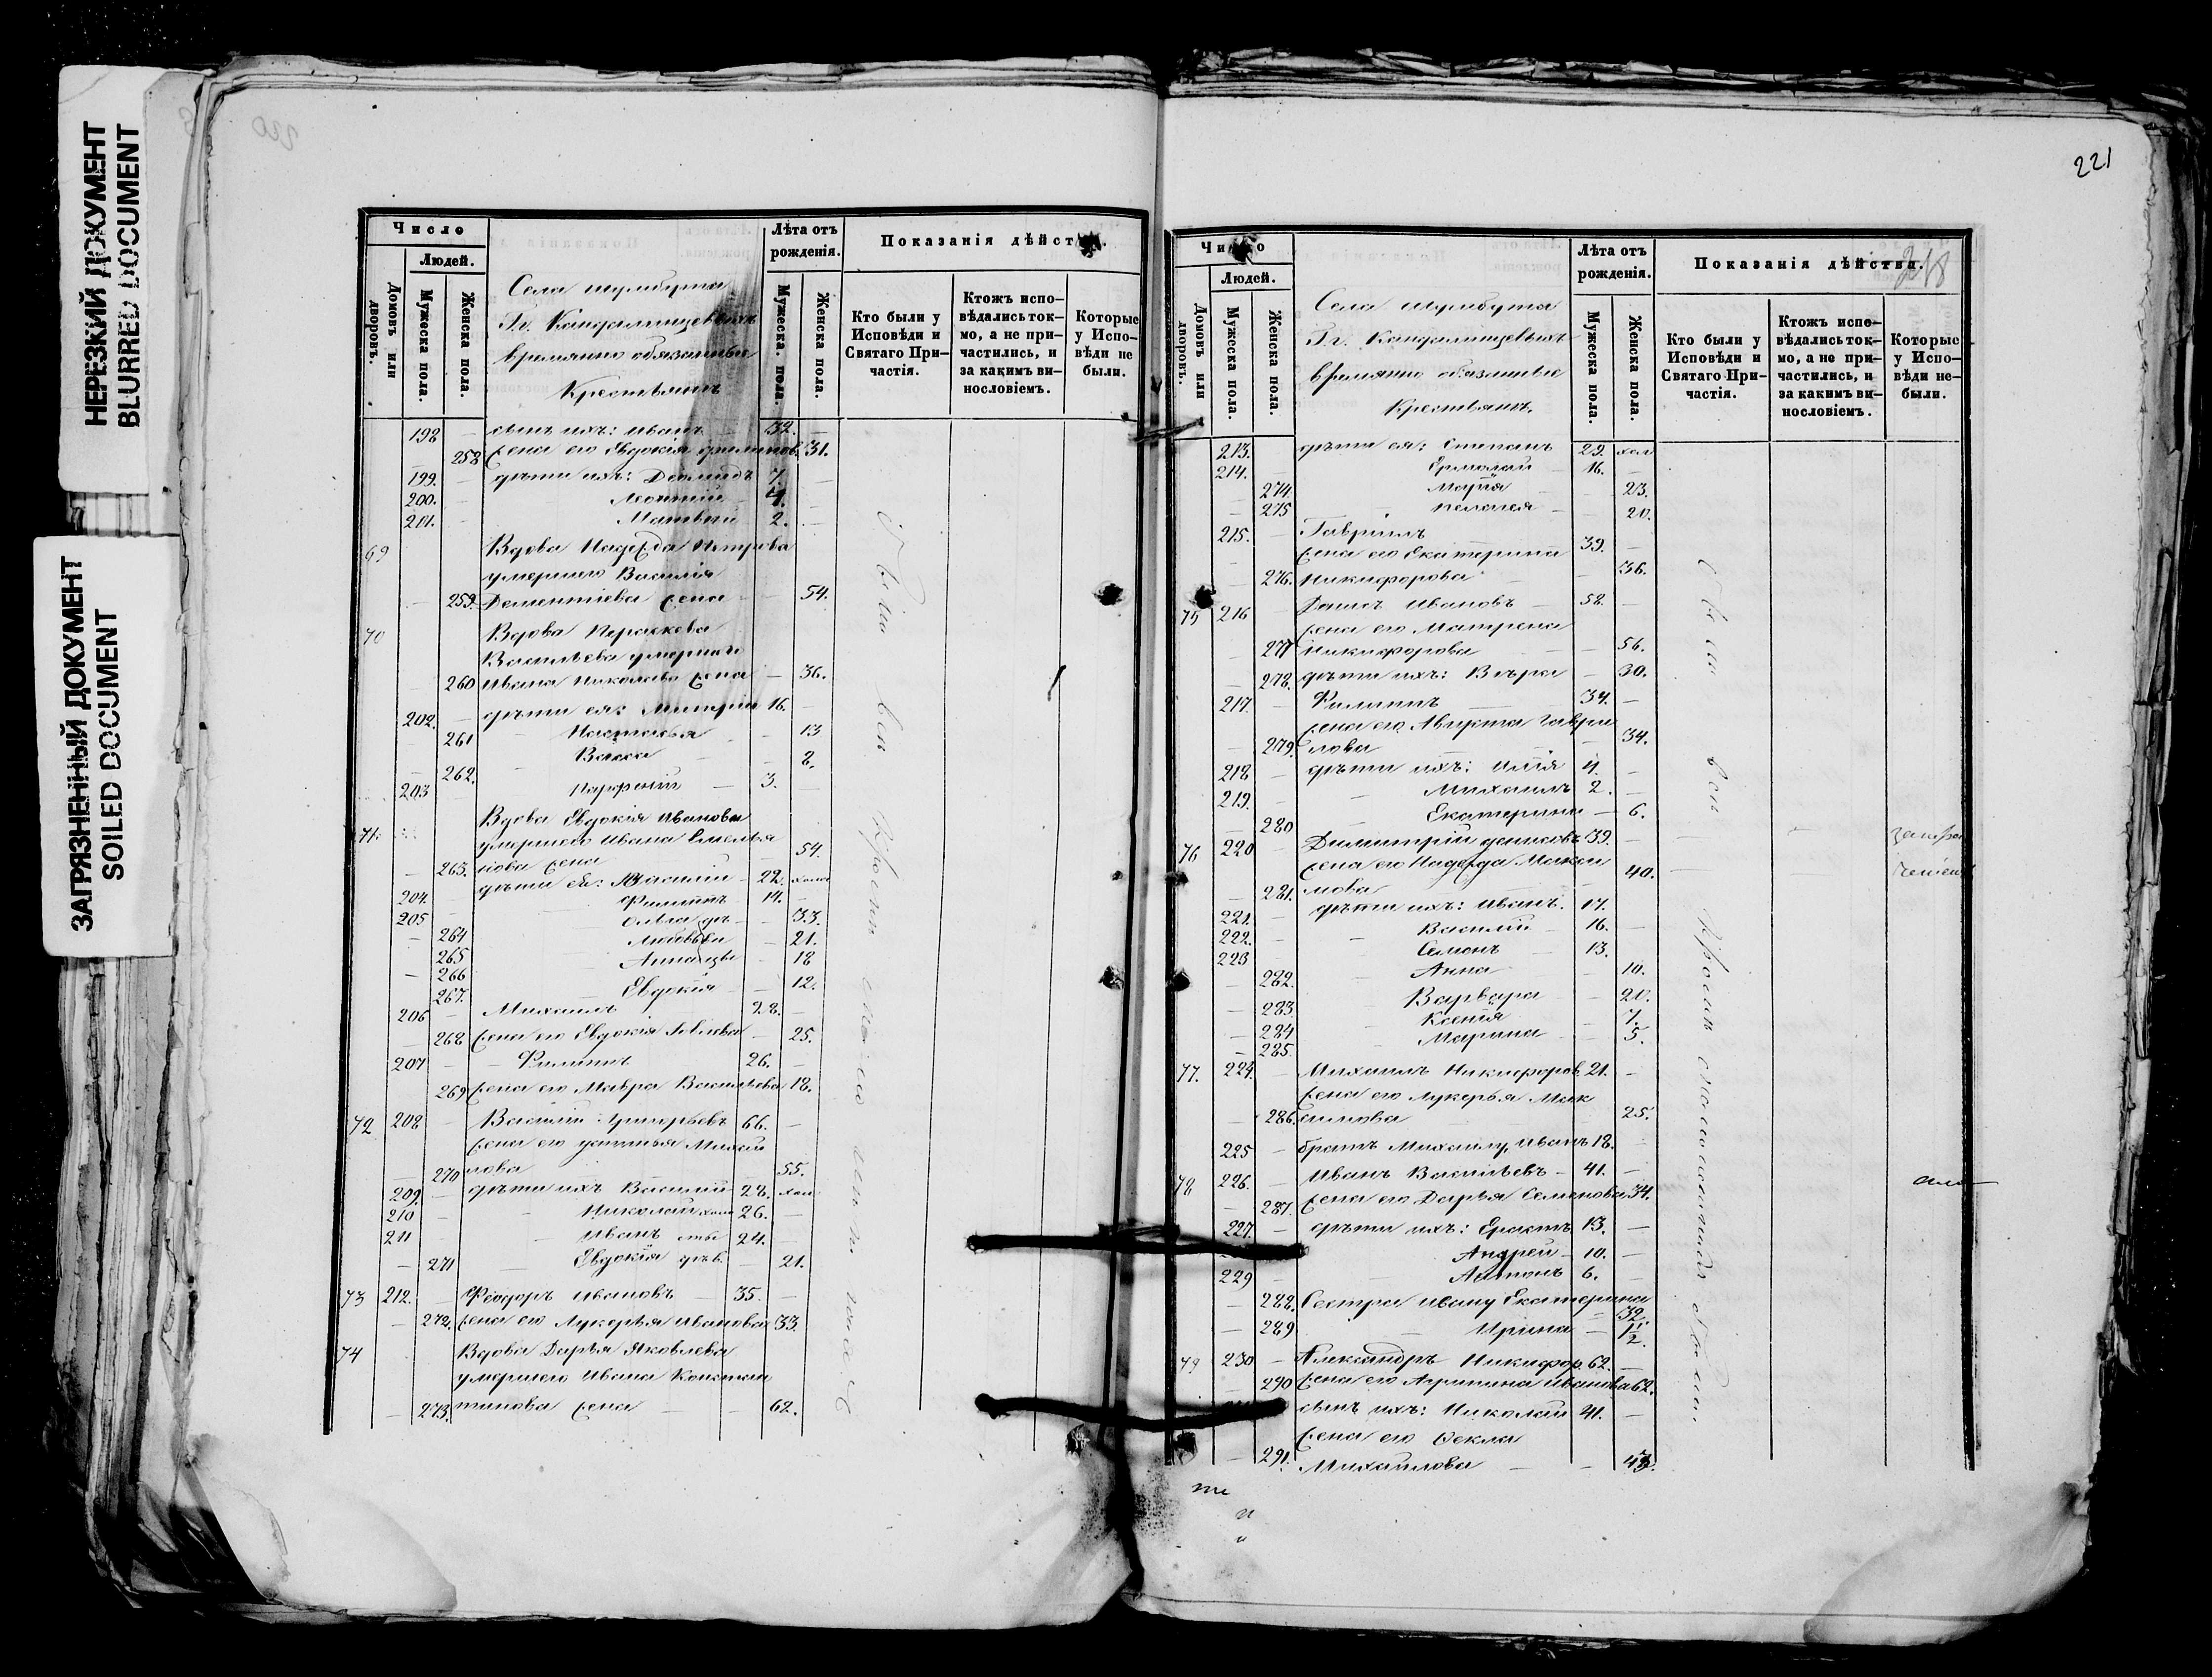 НЕРЕЗКИЙ ДОКУМЕНТ
BLURRED DOCUMENT
ЗАГРЯЗНЕННЫЙ ДОКУМЕНТ
SOILED DOCUMENT
Число
Людей.
Домовъ или дворовъ.
Мужеска пола.
Женска пола.
Села Шумбута
Г.г. Кандалинцевыхъ
временно обязанные
Крестьяне
Лѣта отъ рожденія.
Мужеска. пола.
Женска пола.
Показанія дѣйст
Кто были у Исповѣди и Святаго При-частія.
Ктожъ испо-вѣдались ток-мо, а не при-частились, и за какимъ ви-нословіемъ.
Которые у Испо-вѣди не были.
198 сынъ ихъ: Иванъ 32.
258 жена его Евдокія 31.
199. дѣти ихъ: 7
200. Леонтій 4.
201. Матвѣй 2.
69 Вдова Надежда Петрова
умершего Василія
259. Дементіева жена 54.
70 Вдова Параскева
Васильева умершего
260 Ивана Николаева жена 36.
202. дѣти ея: Дмитрій 16.
261 Настасья 13
262. Васса 8.
203 Парфеній 3.
71. Вдова Евдокія Иванова
умершего Ивана Емелья
263. нова жена 54.
204. дѣти ея: Василій 22. холо
205 Филиппъ 14.
264 дѣ 33.
265 Любовь 21.
266 Анна 18
267. Евдокія 12.
206 Михаилъ 28.
268 жена его Евдокія 25.
207 Филиппъ 26.
269 жена его Мавра Васильева 18.
72 208 Василій Григорьевъ 66.
жена его Устинья Михаи
270 лова 55.
209. дѣти ихъ Василій 28. хол
210 Николай холо 26.
211 Иванъ 24.
271 Евдокія дѣв. 21.
73 212. Ѳеодоръ Ивановъ 35.
272. жена его Лукерья Иванова 33.
74 Вдова Дарья Яковлева
умершего Ивана Констан
273. тинова жена 62.
221
218
Число
Людей.
Домовъ или дворовъ.
Мужеска пола.
Женска пола.
Села Шумбута
Г.г. Кандалинцевыхъ
временно обязанные
Крестьяне.
Лѣта отъ рожденія.
Мужеска пола.
Женска пола.
Показанія дѣйства.
Кто были у Исповѣди и Святаго При-частія.
Ктожъ испо-вѣдались ток-мо, а не при-частились, и за какимъ ви-нословіемъ.
Которые у Испо-вѣди не-были.
213. дѣти ея: Степанъ 29. хол
214. Ермолай 16.
274. Марія 23.
275 Пелагея 20.
215. Гавріилъ 39.
жена его Екатерина
276. Никифорова 36.
75 216 Ивановъ 58.
жена его Матрена
277 Никифорова 56.
278. дѣти ихъ: Вѣра 30.
217. Филиппъ 34.
жена его Гаври
279. лова 34.
218 дѣти ихъ: Илія 4.
219. Михаилъ 2.
280 Екатерина 6.
76 220 Димитрій Денисовъ 39.
жена его Надежда Макси 40.
281. мова
221. дѣти ихъ: Иванъ. 17.
222. Василій 16.
223 Семенъ 13.
282. Анна 10.
283. Варвара 20.
284 Ксенія 7.
285. Марина 5.
77. 224. Михаилъ Никифоров 21.
жена его Лукерья Мак
286. симова 25.
225 братъ Михаилу, Иванъ 18.
78 226. Иванъ Васильевъ 41.
287. жена его Дарья Семенова 34.
227. дѣти ихъ: 13.
Андрей 10.
229 Антонъ 6.
288. Сестра Ивану Екатерина 32.
289 Ирина 1/2.
79 230 Александръ Никифор. 62.
290 жена его Агрипина Иванова 62.
сынъ ихъ: Николай 41.
жена его Ѳекла
291. Михайлова 43.